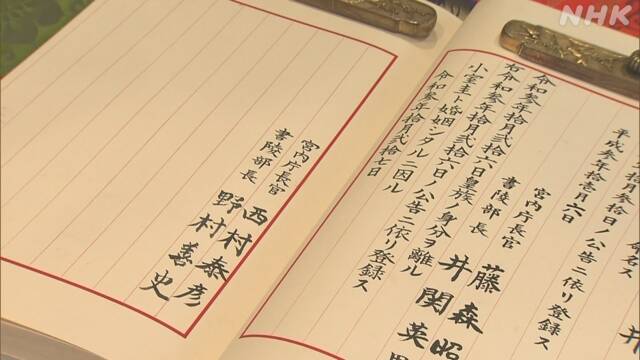 NHK
命名ス
拾月参拾日ノ公告ニ依リ登録ス
平成参年拾壱月六日
宮内庁長官 藤森昭
書陵部長 井関英
令和参年拾月弐拾六日皇族ノ身分ヲ離ル
小室圭ト婚姻シタルニ因ル
右令和参年拾月弐拾六日ノ公告ニ依リ登録ス
令和参年拾月弐拾七日
宮内庁長官 西村泰彦
書陵部長 野村善史